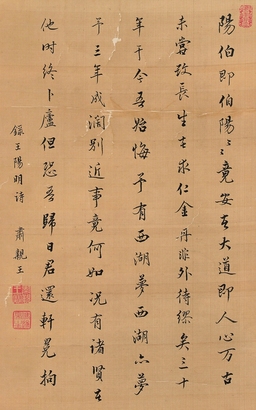 陽伯即伯陽〻〻竟安在大道即人心万古
未嘗改長生在求仁金丹非外待繆矣三十
年于今吾始悔予有西湖夢西湖亦夢
予三年成闊別近事竟何如況有諸賢在
他时終卜廬但恐吾歸日君還軒冕拘
錄王陽明詩 肅親王